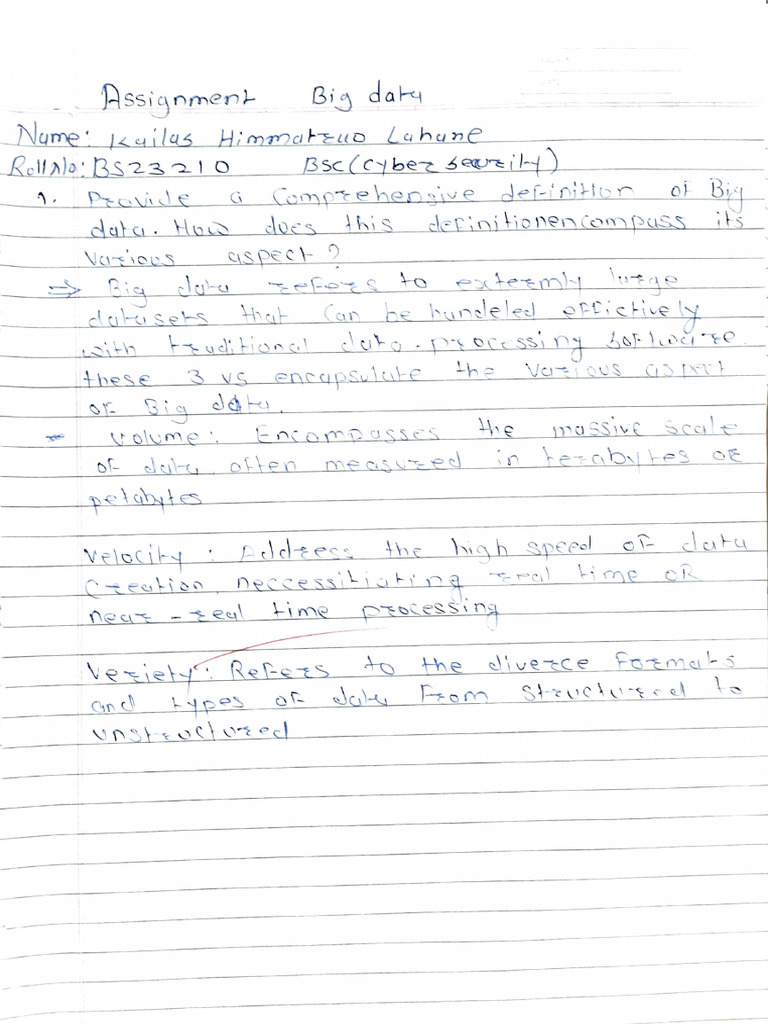 Assignment Big data
Name: Kailas Himmatrao Lahane
Roll No: BS23210 BSC (cyber security)
1. Provide a Comprehensive definition of Big
data. How does this definitionencompass its
various aspect?
⇒ Big data refers to extermly large
datasets that can be handeled effictively
with traditional data-processing software.
these 3 vs encapsulate the various aspect
of Big data.
- volume: Encompasses the massive scale
of data, often measured in terabytes or
petabytes
velocity: Address the high speed of data
Creation, neccessitiating real time or
near-real time processing
Veriety: Refers to the diverce formats
and types of data from structured to
unstructured